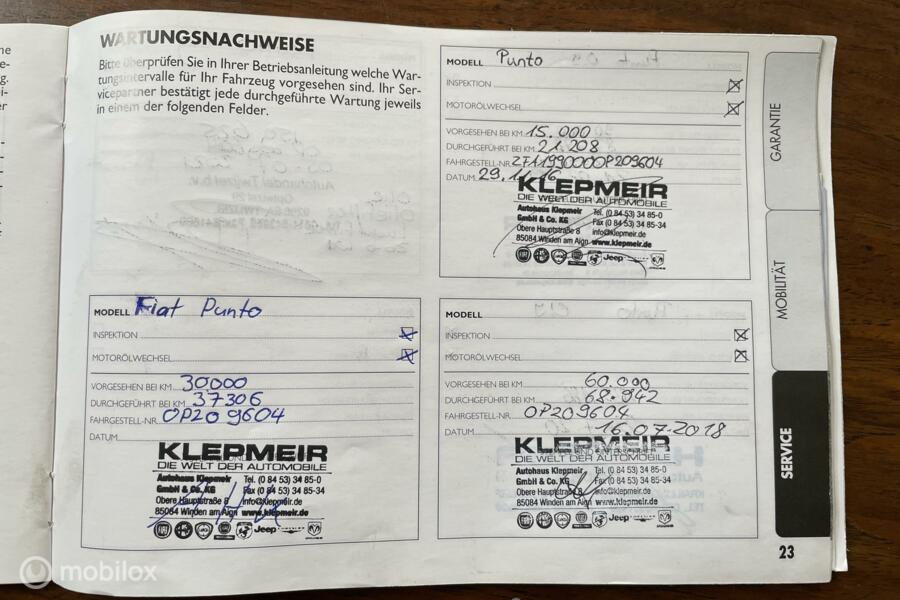 WARTUNGSNACHWEISE
Bitte überprüfen Sie in Ihrer Betriebsanleitung welche War-
tungsintervalle für Ihr Fahrzeug vorgesehen sind. Ihr Ser-
vicepartner bestätigt jede durchgeführte Wartung jeweils
in einem der folgenden Felder.
MODELL Punto
INSPEKTION
MOTORÖLWECHSEL
VORGESEHEN BEI KM 15.000
DURCHGEFÜHRT BEI KM 21.208
FAHRGESTELL-NR. ZFA1990000P209604
DATUM 29.11.16
KLEPMEIR
DIE WELT DER AUTOMOBILE
Autohaus Klepmeir Tel. (0 84 53) 34 85-0
GmbH & Co. KG Fax (0 84 53) 34 85-34
Obere Hauptstraße 8 info@klepmeir.de
85084 Winden am Aign www.klepmeir.de
Jeep
MODELL Fiat Punto
INSPEKTION
MOTORÖLWECHSEL
VORGESEHEN BEI KM 30.000
DURCHGEFÜHRT BEI KM 37306
FAHRGESTELL-NR. 0P209604
DATUM
KLEPMEIR
DIE WELT DER AUTOMOBILE
Autohaus Klepmeir Tel. (0 84 53) 34 85-0
GmbH & Co. KG Fax (0 84 53) 34 85-34
Obere Hauptstraße 8 info@klepmeir.de
85084 Winden am Aign www.klepmeir.de
Jeep
MODELL
INSPEKTION
MOTORÖLWECHSEL
VORGESEHEN BEI KM 60.000
DURCHGEFÜHRT BEI KM 68.942
FAHRGESTELL-NR. 0P209604
DATUM 16.07.2018
KLEPMEIR
DIE WELT DER AUTOMOBILE
Autohaus Klepmeir Tel. (0 84 53) 34 85-0
GmbH & Co. KG Fax (0 84 53) 34 85-34
Obere Hauptstraße 8 info@klepmeir.de
85084 Winden am Aign www.klepmeir.de
Jeep
GARANTIE
MOBILITÄT
SERVICE
23
mobilox